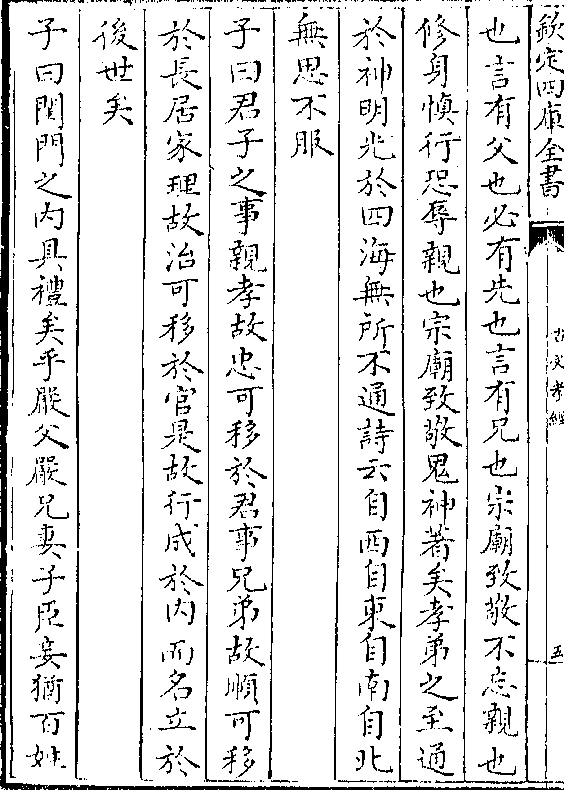 欽定四庫全書
古文孝經
五
也言有父也必有先也言有兄也宗廟致敬不忘親也
修身慎行恐辱親也宗廟致敬鬼神著矣孝弟之至通
於神明光於四海無所不通詩云自西自東自南自北
無思不服
子曰君子之事親孝故忠可移於君事兄弟故順可移
於長居家理故治可移於官是故行成於内而名立於
後世矣
子曰閨門之内具禮矣乎嚴父嚴兄妻子臣妾猶百姓